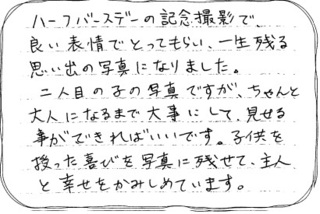 ハーフバースデーの記念撮影で、
良い表情でとってもらい、一生残る
思い出の写真になりました。
二人目の子の写真ですが、ちゃんと
大人になるまで大事にして、見せる
事ができればいいです。子供を
授った喜びを写真に残せて、主人
と幸せをかみしめています。